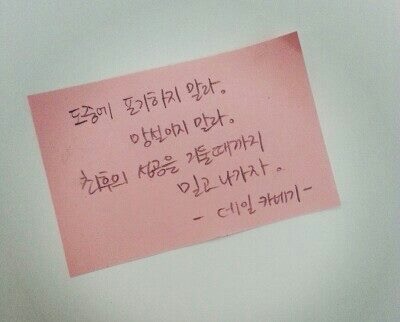 도중에 포기하지 말라.
망설이지 말라.
최후의 성공을 거둘때까지
밀고 나가자.
- 데일 카네기 -